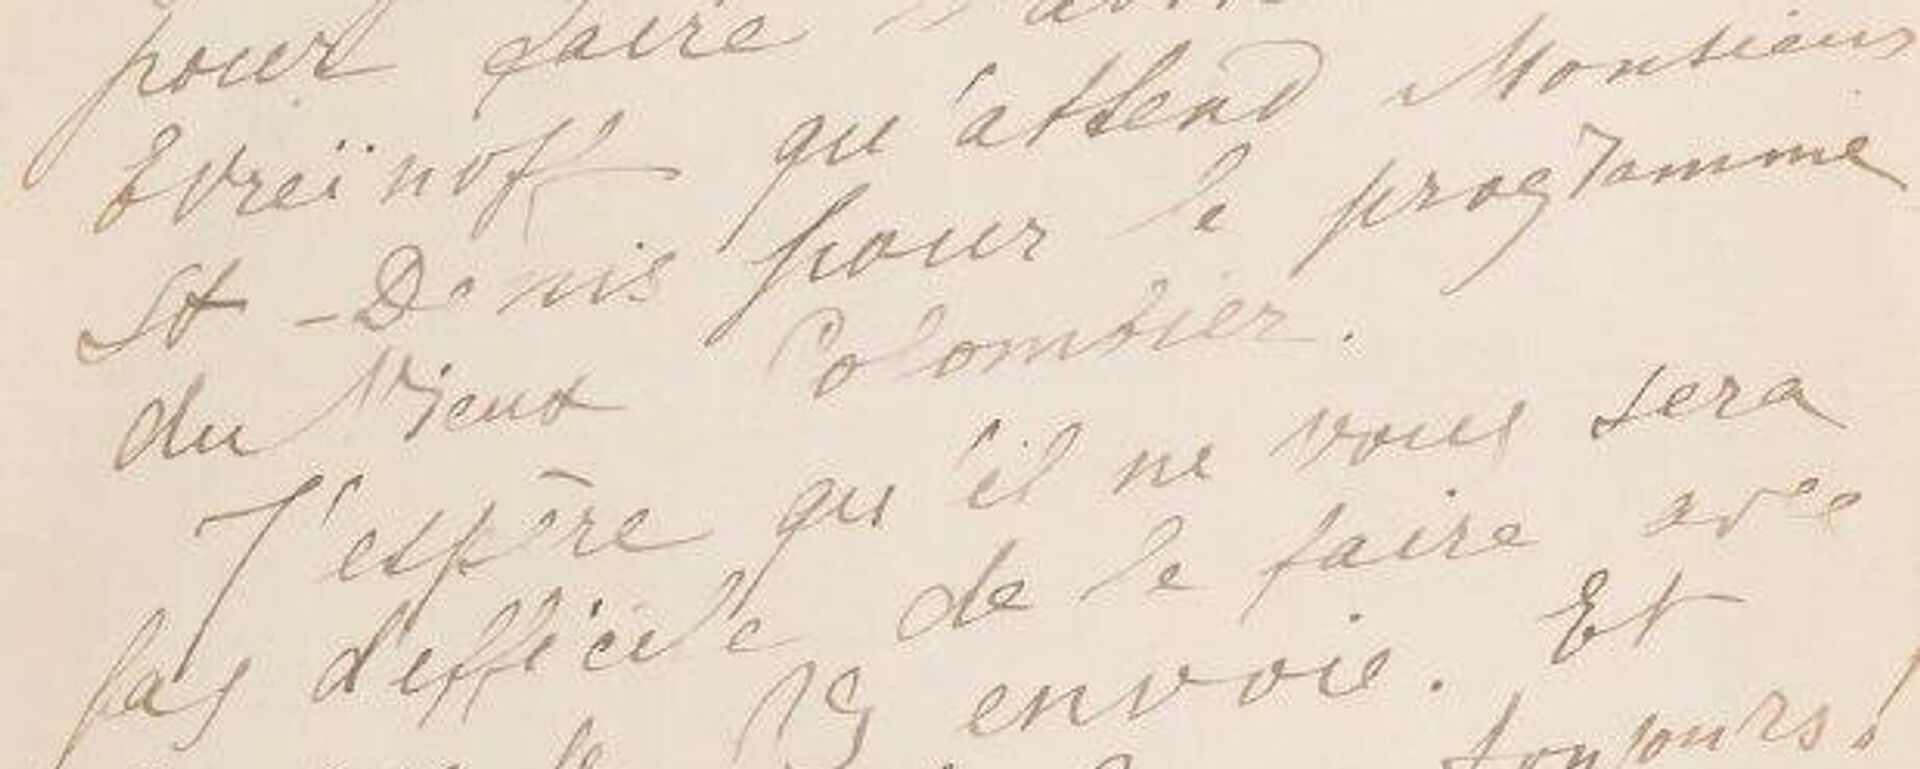 pour faire
Evreïnoff qu'attend Monsieur
St-Denis pour le programme
du Vieux Colombier.
J'espère qu'il ne vous sera
pas difficile de le faire avec
envoie. Et
toujours!